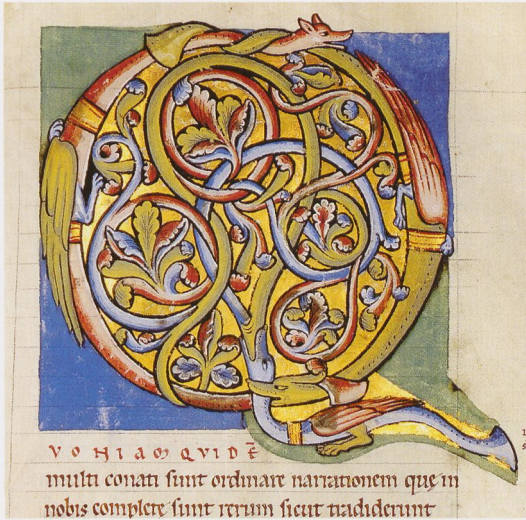 Q
VONIAM QVIDĒ
multi conati sunt ordinare narrationem quę in
nobis complete sunt rerum sicut tradiderunt